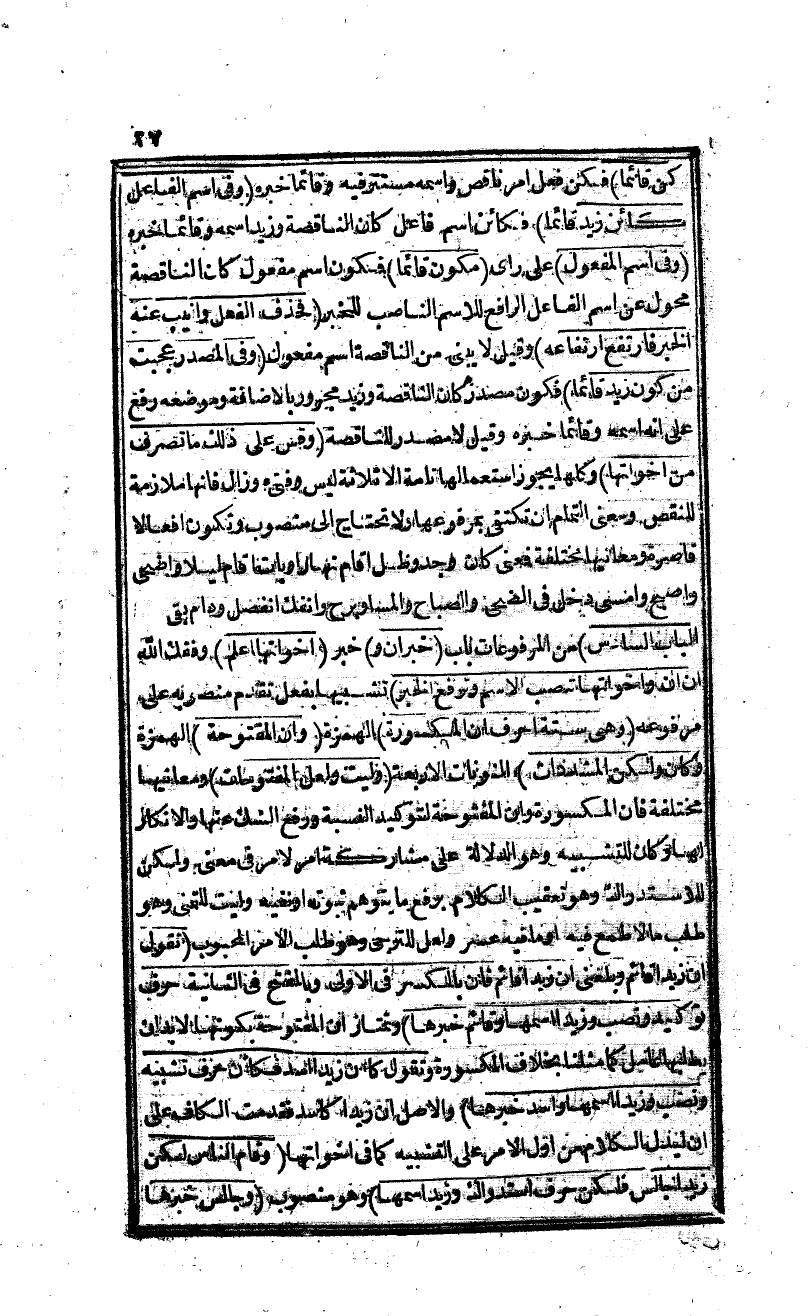 ٢٧
كن قائما) فكن فعل امر ناقص واسمه مستتر فيه وقائما خبره (وفى اسم الفاعل
كائن زيد قائما). فكائن اسم فاعل كان الناقصة وزيد اسمه وقائما خبره
(وفى اسم المفعول) على راى (مكون قائما) فمكون اسم مفعول كان الناقصة
محول عن اسم الفاعل الرافع للاسم الناصب للخبر (فحذف الفعل وانيب عنه
الخبر فارتفع ارتفاعه) وقيل لا يبنى من الناقصة اسم مفعول (وفى المصدر عجبت
من كون زيد قائما) فكون مصدر كان الناقصة وزيد مجرور بالاضافة وموضعه رفع
على انه اسمه وقائما خبره وقيل لا مصدر للناقصة (وقس على ذلك ما تصرف
من اخواتها) وكلها يجوز استعمالها تامة الا ثلاثة ليس وفتئ وزال فانها ملازمة
للنقص ومعنى التمام ان تكتفى بمرفوعها ولا تحتاج الى منصوب وتكون افعالا
قاصرة ومعانيها مختلفة فمعنى كان وجد وظل اقام نهارا وبات اقام ليلا واضحى
واصبح وامسى دخل فى الضحى والصباح والمسا وبرح وانفك انفصل ودام بقى
الباب السادس) من المرفوعات باب (خبر ان و) خبر (اخواتها اعلم) وفقك الله
ان ان واخواتها تنصب الاسم وترفع الخبر) تشبيها بفعل تقدم منصوبه على
مرفوعه (وهى ستة احرف ان المكسورة) الهمزة (وان المفتوحة) الهمزة
وكان ولكن المشددات) النونات الاربعة (وليت ولعل المفتوحات) ومعانيها
مختلفة فان المكسورة وان المفتوحة لتوكيد النسبة ورفع الشك عنها والانكار
لها وكان للتشبيه وهو الدلالة على مشاركة امر لامر فى معنى ولكن
للاستدراك وهو تعقيب الكلام برفع ما يتوهم ثبوته او نفيه وليت للتمنى وهو
طلب ما لا طمع فيه او ما فيه عسر ولعل للترجى وهو طلب الامر المحبوب (تقول
ان زيدا قائم وبلغنى ان زيدا قائم فان بالكسر فى الاولى وبالفتح فى الثانية حرف
توكيد ونصب وزيدا اسمها وقائم خبرها) وتمتاز ان المفتوحة بكونها لا بد ان
يطلبها عامل كما مثلنا بخلاف المكسورة وتقول كان زيدا اسد فكان حرف تشبيه
ونصب وزيدا اسمها واسد خبرها) والاصل ان زيدا كاسد فقدمت الكاف على
ان ليدل الكلام من اول الامر على التشبيه كما فى اخواتها (وقام الناس لكن
زيدا جالس فلكن حرف استدراك وزيدا اسمها) وهو منصوب (وجالس خبرها